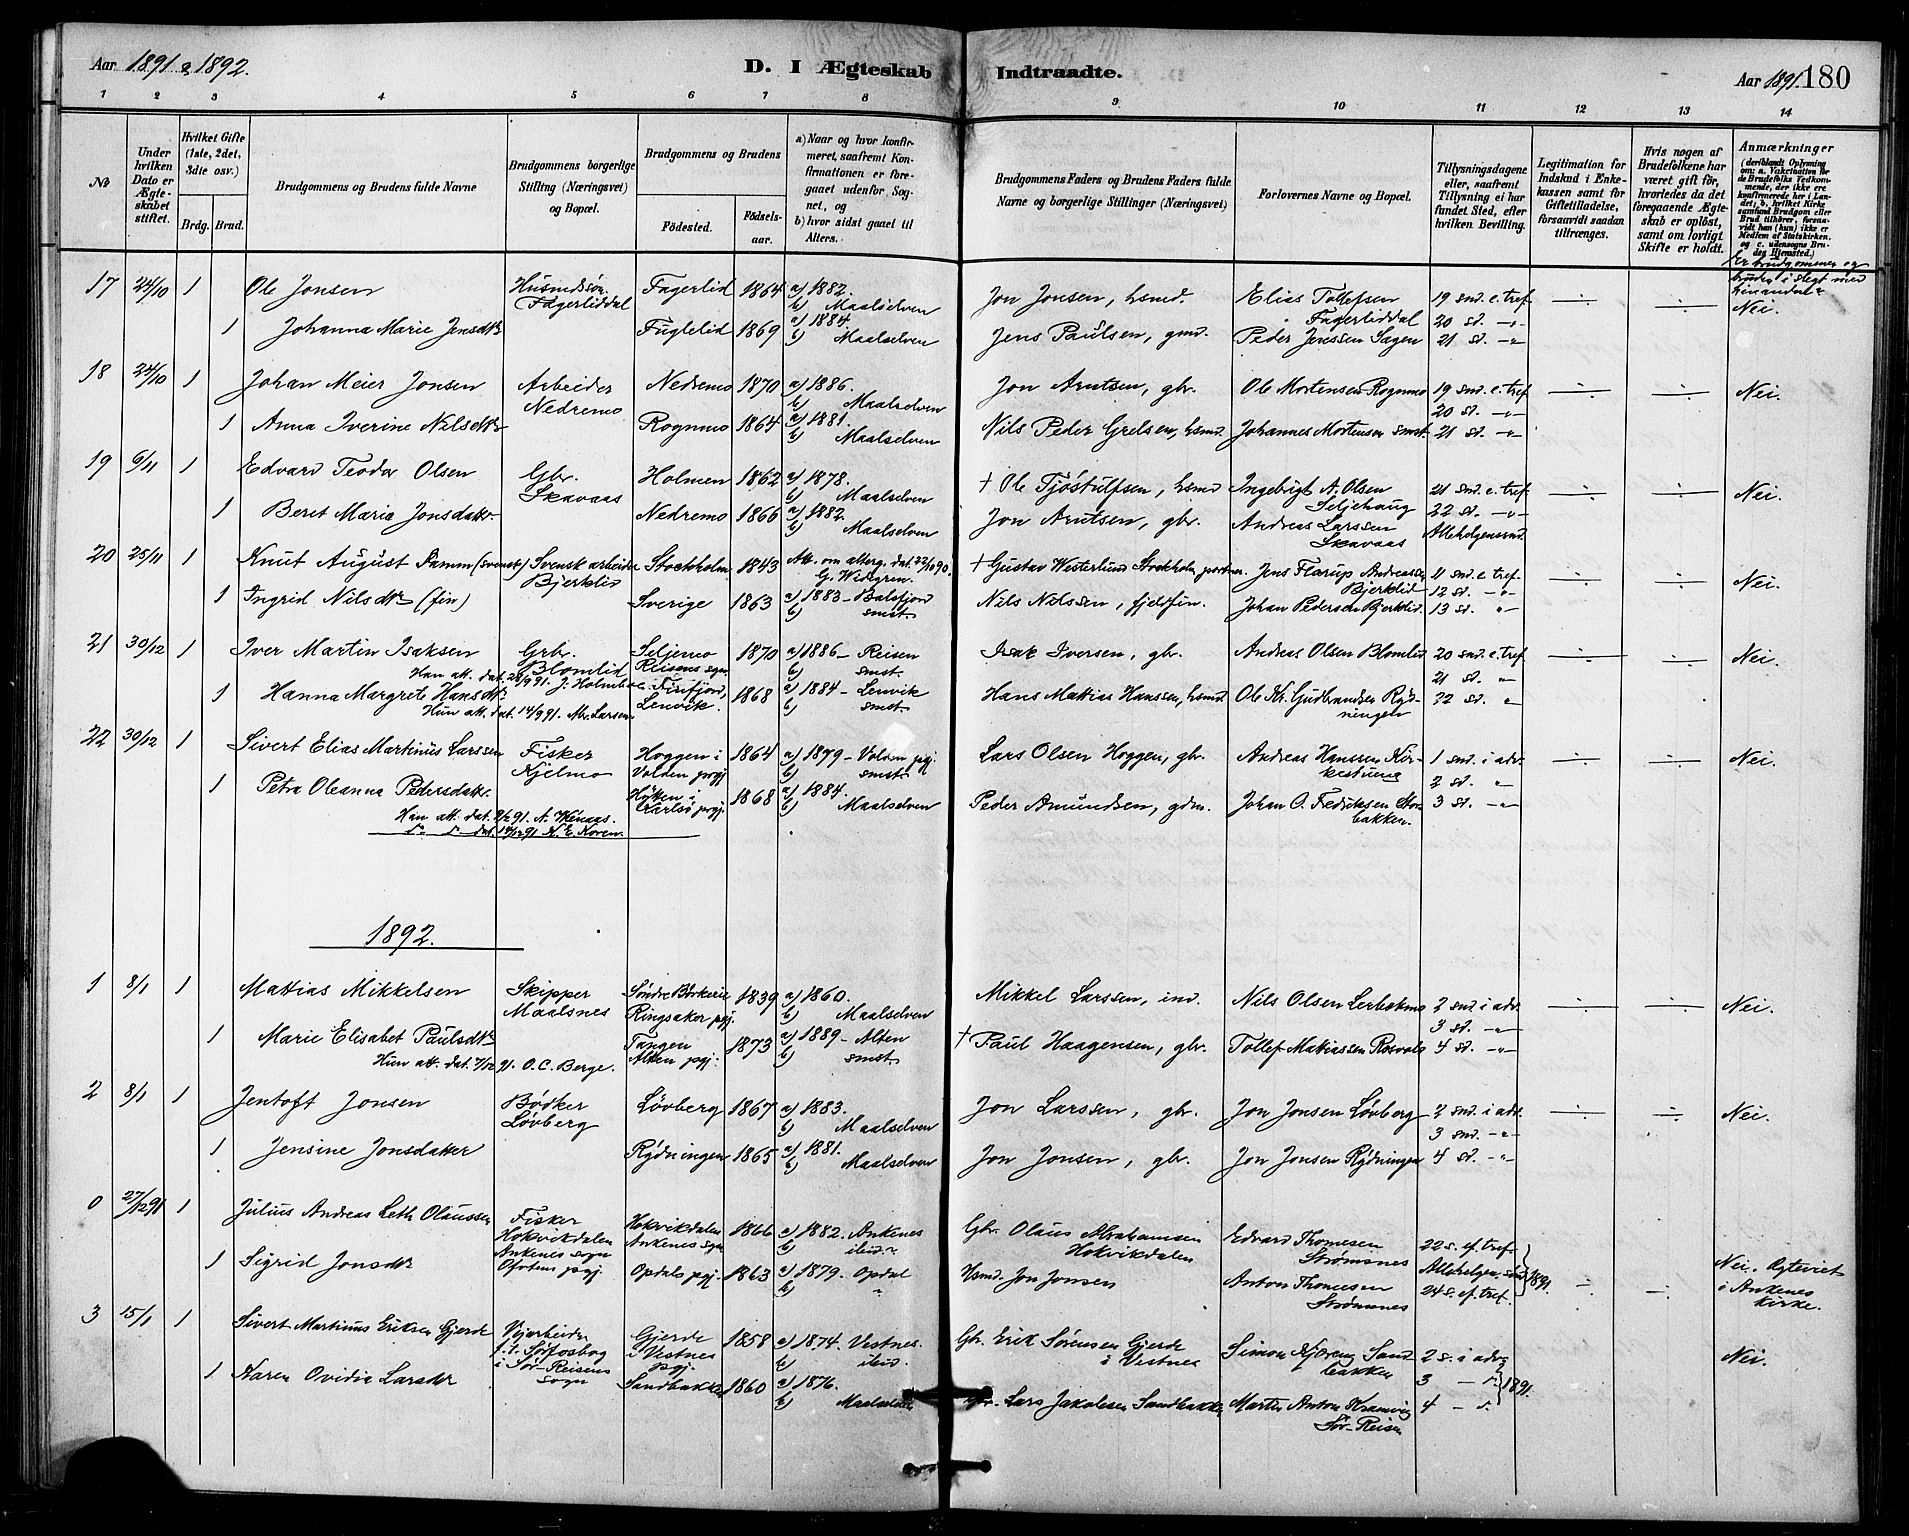 Aar 1891 & 1892.
D. I Ægteskab Indtraadte.
Aar 1891. 180
1 2 3 4 5 6 7 8 9 10 11 12 13 14
No
Under hvilken Dato er Ægteskabet stiftet.
Hvilket Gifte (1ste, 2det, 3die osv.)
Brdg. Brud.
Brudgommens og Brudens fulde Navne
Brudgommens borgerlige Stilling (Næringsvei) og Bopæl.
Brudgommens og Brudens
Fødested.
Fødselsaar.
a) Naar og hvor konfirmeret, saafremt Konfirmationen er foregaaet udenfor Sognet, og
b) hvor sidst gaaet til Alters.
Brudgommens Faders og Brudens Faders fulde Navne og borgerlige Stillinger (Næringsvei)
Forlovernes Navne og Bopæl.
Tillysningsdagene eller, saafremt Tillysning ei har fundet Sted, efter hvilken Bevilling.
Legitimation for Indskud i Enkekassen samt for Giftetilladelse, forsaavidt saadan tiltrænges.
Hvis nogen af Brudefolkene har været gift før, hvorledes da det foregaaende Ægteskab er opløst, samt om lovligt Skifte er holdt.
Anmærkninger
(deriblandt Oplysning om: a. Vaksination for de Brudefolks Vedkommende, der ikke ere konfirmerede her i Landet; b. hvilket Kirkesamfund Brudgom eller Brud tilhører, forsaavidt han (hun) ikke er Medlem af Statskirken, og c. udensogns Brudes Hjemsted.)
Er brudgommen og bruden i slegt med hinanden?
17 24/10 1 Ole Jonsen Husmdsøn Fagerlid 1864 a) 1882. Jon Jonsen, hsmd. Elias Tollefsen 19 snd. e. tref
Fagerliddal b) Maalselven Fagerliddal 20 sd. -"- Nei.
1 Johanna Marie Jensdtr Fuglelid 1869 a) 1884. Jens Paulsen, gmd. Peder Jenssen Sagen 21 sd. -"-
b) Maalselven
18 24/10 1 Johan Meier Jonsen Arbeider Nedremo 1870 a) 1886. Jon Arntsen, gbr. Ole Mortensen Rognmo 19 snd. e. tref Nei.
Nedremo b) Maalselven 20 sd. -"-
1 Anna Iverine Nilsdtr Rognmo 1864 a) 1881. Nils Peder Grelsen, hsmd. Johannes Mortensen smst. 21 sd. -"-
b) Maalselven
19 6/11 1 Edvard Teodor Olsen Gbr. Holmen 1862 a) 1878. † Ole Tjøstulfsen, hsmd Ingebrigt A. Olsen 21 snd. e. tref Nei.
Skavaas b) Maalselven Seljehaug 22 sd. -"-
1 Beret Marie Jonsdatter. Nedremo 1866 a) 1882. Jon Arntsen, gbr. Andreas Larssen Allehelgensnd.
b) Maalselven Skavaas
20 25/11 1 Knut August Damm (svensk) Svensk arbeider Stockholm 1843 Att. om alterg. dat. 22/10 90. † Gustav Westerlund Stockholm Jens Flarup Andreassen 11 snd. e. tref. Nei.
Bjerklid G. Widgren. Bjerklid 12 sd. -"-
1 Ingrid Nilsdtr (fin) Sverige 1863 a) 1883 – Balsfjord Nils Nilssen, fjeldfin. Johan Pedersen Bjerklid. 13 sd. "
b) smst.
21 30/12 1 Iver Martin Isaksen Grbr. Seljemo 1870 a) 1886 – Reisen Isak Iversen, gbr. Andreas Olsen Blomlid 20 snd. e. tref Nei.
Blomlid Reisens sgn b) smst. 21 sd. "
Han att. dat. 28/9 91. J. Holmboe
1 Hanna Margrete Hansdtr Finfjord, Lenvik. 1868 a) 1884 – Lenvik Hans Mattias Hanssen, hsmd Ole Kr. Gudbrandsen Rydningen 22 sd. "
Hun att. dat. 14/9 91. Mr. Larsen b) smst.
22 30/12 1 Sivert Elias Martinus Larssen Fisker Hoggen i 1864 a) 1879 – Volden pgj. Lars Olsen Hoggen, gbr. Andreas Hanssen Kirkestuen 1 snd. i adv. Nei.
Kjelmo Volden prgj b) smst. 2 sd. "
1 Petra Oleanna Pedersdatter. Hytten i 1868 a) 1884. Peder Amundsen, gdm. Johan O. Fredriksen Storbakken. 3 sd. -"-
Karlsø pgj. b) Maalselven
Han att. dat. 2/12 91. A. Wenaas.
do do dat. 14/12 91 N. E. Koren.
1892.
1 8/1 1 Mattias Mikkelsen Skipper Søndre Børkerie 1839 a) 1860. Mikkel Larssen, ind. Nils Olsen Lerbakmo 2 snd. i adv. Nei.
Maalsnes Ringsaker pgj. b) Maalselven 3 sd. -"-
1 Marie Elisabet Paulsdtr Tangen 1873 a) 1889 – Alten † Paul Haagensen, gbr. Tollef Mattiassen Rosvold 4 sd. -"-
Hun att. dat. 7/12 91. O. C. Berge. Alten pgj. b) smst.
2 8/1 1 Jentoft Jonsen Bødker Løvberg 1867 a) 1883. Jon Larssen, gbr. Jon Jonsen Løvberg 2 snd. i adv. Nei.
Løvberg b) Maalselven 3 snd. -"-
1 Jensine Jonsdatter Rydningen 1865 a) 1881. Jon Jonsen, gbr. Jon Jonsen Rydningen 4 sd. -"-
b) Maalselven
0 27/12 91 1 Julius Andreas Leth Olaussen Fisker Hokvikdalen 1866 a) 1882. Ankenes Gbr. Olaus Abrahamsen Edvard Thomesen 22 s. ef. tref.
Hokvikdalen Ankenes sgn b) ibid. Hokvikdalen Strømsnes Allehelgen snd 1891.
1 Sigrid Jonsdtr Ankenes sogn Opdals pgj. 1863 a) 1879. Opdal Hsmd. Jon Jonsen Anton Thomesen 24 s. ef. tref. Nei. Egteviet i Ankenes kirke.
Ofotens pgj. b) " Strømsnes
3 15/1 1 Sivert Martinus Eriksen Gjerde Veiarbeider Gjerde 1858 a) 1874. Vestnes Gbr. Erik Sørensen Gjerde Simon Kjæreng Sandbakken 2 s. i adv. Nei.
f. t. Sørfosbog i Vestnes pgj. b) ibid. i Vestnes 3 – " 1891.
1 Karen Ovidia Larsdtr i Sør-Reisens sogn Sandbakken 1860 a) 1876. Gbr. Lars Jakobsen Sandbakken Martin Anton Kramvig 4 – "
b) Maalselven Sør-Reisen